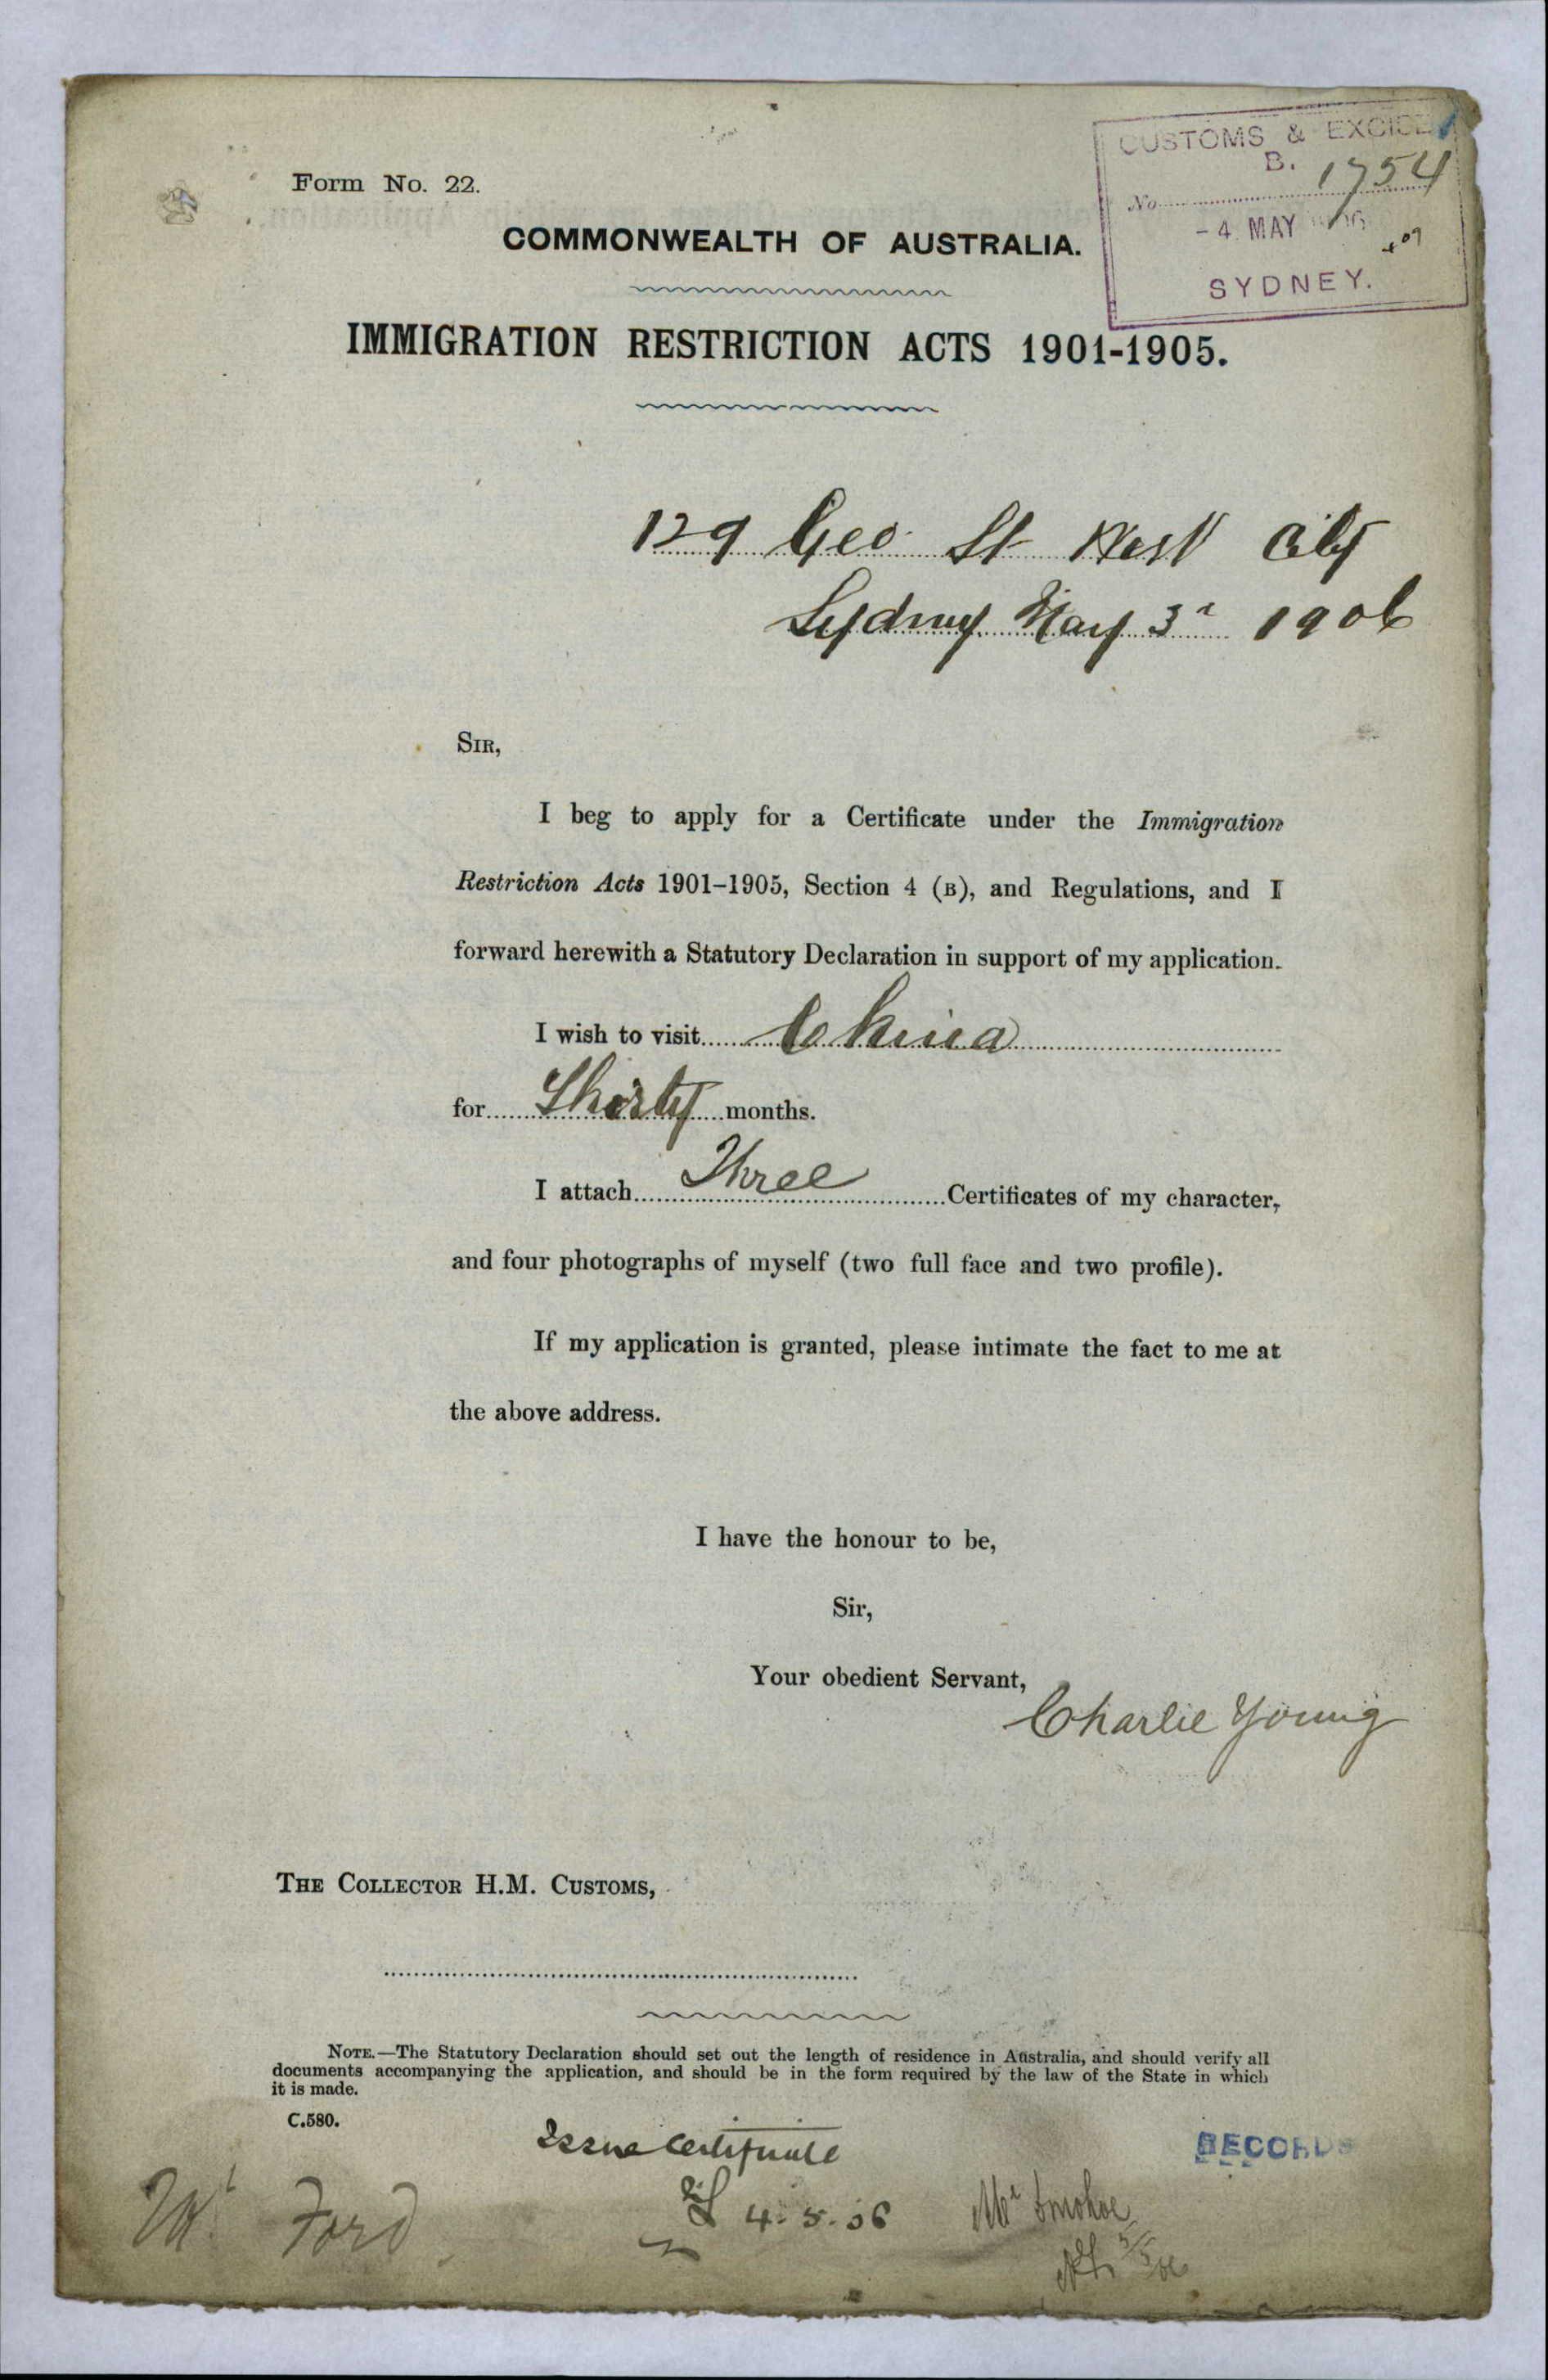 CUSTOMS & EXCISE
B.
No. 1754
- 4 MAY 1906
SYDNEY.
Form No. 22.
COMMONWEALTH OF AUSTRALIA.
IMMIGRATION RESTRICTION ACTS 1901-1905.
129 Geo St West City
Sydney May 3rd 1906
SIR,
I beg to apply for a Certificate under the Immigration
Restriction Acts 1901–1905, Section 4 (B), and Regulations, and I
forward herewith a Statutory Declaration in support of my application.
I wish to visit China
for Thirty months.
I attach Three Certificates of my character,
and four photographs of myself (two full face and two profile).
If my application is granted, please intimate the fact to me at
the above address.
I have the honour to be,
Sir,
Your obedient Servant,
Charlie Young
THE COLLECTOR H.M. CUSTOMS,
NOTE.—The Statutory Declaration should set out the length of residence in Australia, and should verify all
documents accompanying the application, and should be in the form required by the law of the State in which
it is made.
C.580.
Issue Certificate
RECORDS
4.5.06
Mr Donohoe
Mr Ford
5/5/06